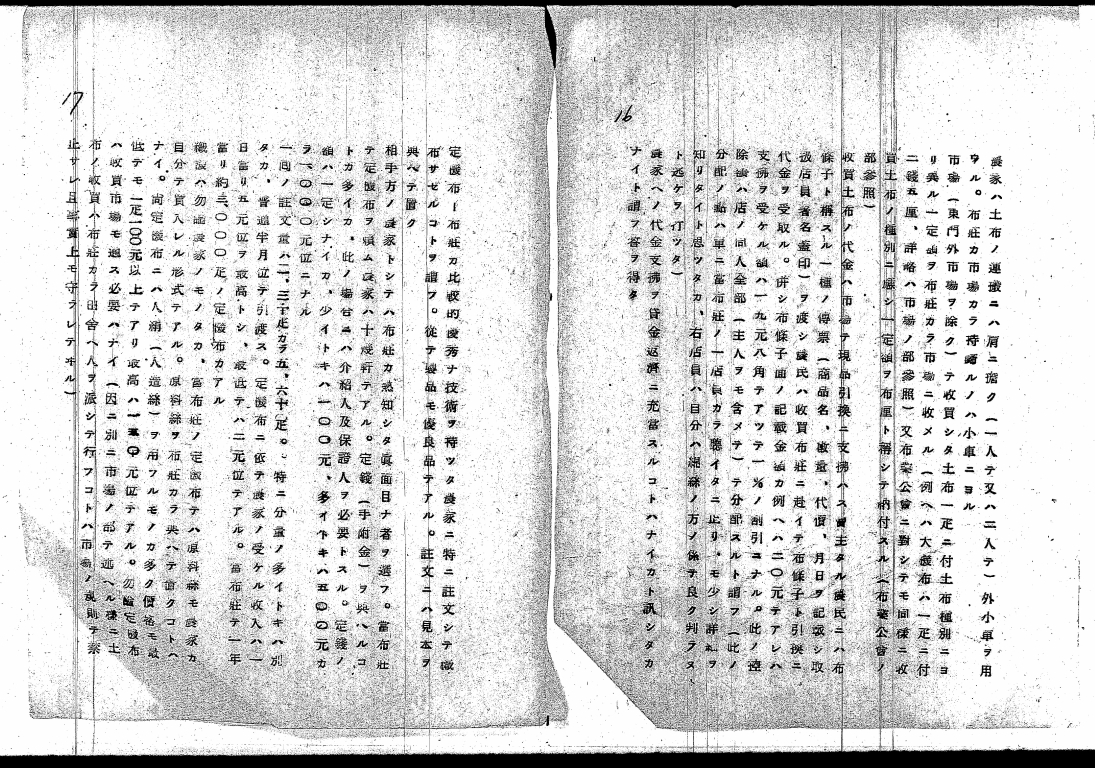 16
農家ハ土布ノ運搬ニハ肩ニ擔ク(一人テ又ハ二人テ)外小車ヲ用
ヰル。布莊カ市場カラ持歸ルノハ小車ニヨル
市場(東門外市場ヲ除ク)テ收買シタ土布一疋ニ付土布種別ニヨ
リ異ル一定額ヲ布莊カラ市場ニ收メル(例ヘハ大機布ハ一疋ニ付
二錢五厘、詳略ハ市場ノ部參照)又布業公會ニ對シテモ同樣ニ收
買土布ノ種別ニ應シ一定額ヲ布厘ト稱シテ納付スル(布業公會ノ
部參照)
收買土布ノ代金ハ市場テ現品引換ニ支拂ハス賣主タル農民ニハ布
條子ト稱スル一種ノ傳票(商品名、數量、代價、月日ヲ記載シ取
扱店員署名蓋印)ヲ渡シ農民ハ收買布莊ニ赴イテ布條子ト引換ニ
代金ヲ受取ル。併シ布條子面ノ記載金額カ例ヘハ二〇元テアレハ
支拂ヲ受ケル額ハ一九元八角テアツテ一%ノ割引ニナル。此ノ控
除額ハ店ノ同人全部(主人ヲモ含メテ)テ分配スルト謂フ(此ノ
分配ノ點ハ單ニ富布莊ノ一店員カラ聽イタニ止リ、モ少シ詳細ヲ
知リタイト思ツタカ、右店員ハ自分ハ綿絲ノ方ノ係テ良ク判ラヌ
ト逃ケヲ打ツタ)
農家ヘノ代金支拂ヲ貸金返濟ニ充當スルコトハナイカト訊シタカ
ナイト謂フ答ヲ得タ
17
定機布ー布莊カ比較的優秀ナ技術ヲ持ツタ農家ニ特ニ註文シテ織
布サセルコトヲ謂フ。從テ製品モ優良品テアル。註文ニハ見本ヲ
與ヘテ置ク
相手方ノ農家トシテハ布莊カ熟知シタ眞面目ナ者ヲ選フ。富布莊
テ定機布ヲ頼ム農家ハ十幾軒テアル。定錢(手附金)ヲ與ヘルコ
トカ多イカ、此ノ場合ニハ介紹人及保證人ヲ必要トスル。定錢ノ
額ハ一定シナイカ、少イトキハ一〇〇元、多イトキハ五〇〇元カ
ラ一、〇〇〇元位ニナル
一回ノ註文量ハ二、三十疋カラ五、六十疋。特ニ分量ノ多イトキハ別
タカ、普通半月位テ引渡ス。定機布ニ依テ農家ノ受ケル收入ハ一
日當リ五元位ヲ最高トシ、最低テハ二元位テアル。富布莊テ一年
當リ約三、〇〇〇疋ノ定機布カアル
織機ハ勿論農家ノモノタカ、富布莊ノ定機布テハ原料綿モ農家カ
自分テ買入レル形式テアル。原料絲ヲ布莊カラ與ヘテ置クコトハ
ナイ。尚定機布ニハ人絹(人造絲)ヲ用フルモノカ多ク價格モ最
低テモ一疋一〇〇元以上テアリ最高ハ一五〇元位テアル。勿論定機布
ハ收買市場モ通ス必要ハナイ(因ニ別ニ市場ノ部テ述ヘル樣ニ土
布ノ收買ハ布莊カラ田舍ヘ人ヲ派シテ行フコトハ市場ノ規則テ禁
止サレ且事實上モ守ラレテヰル)